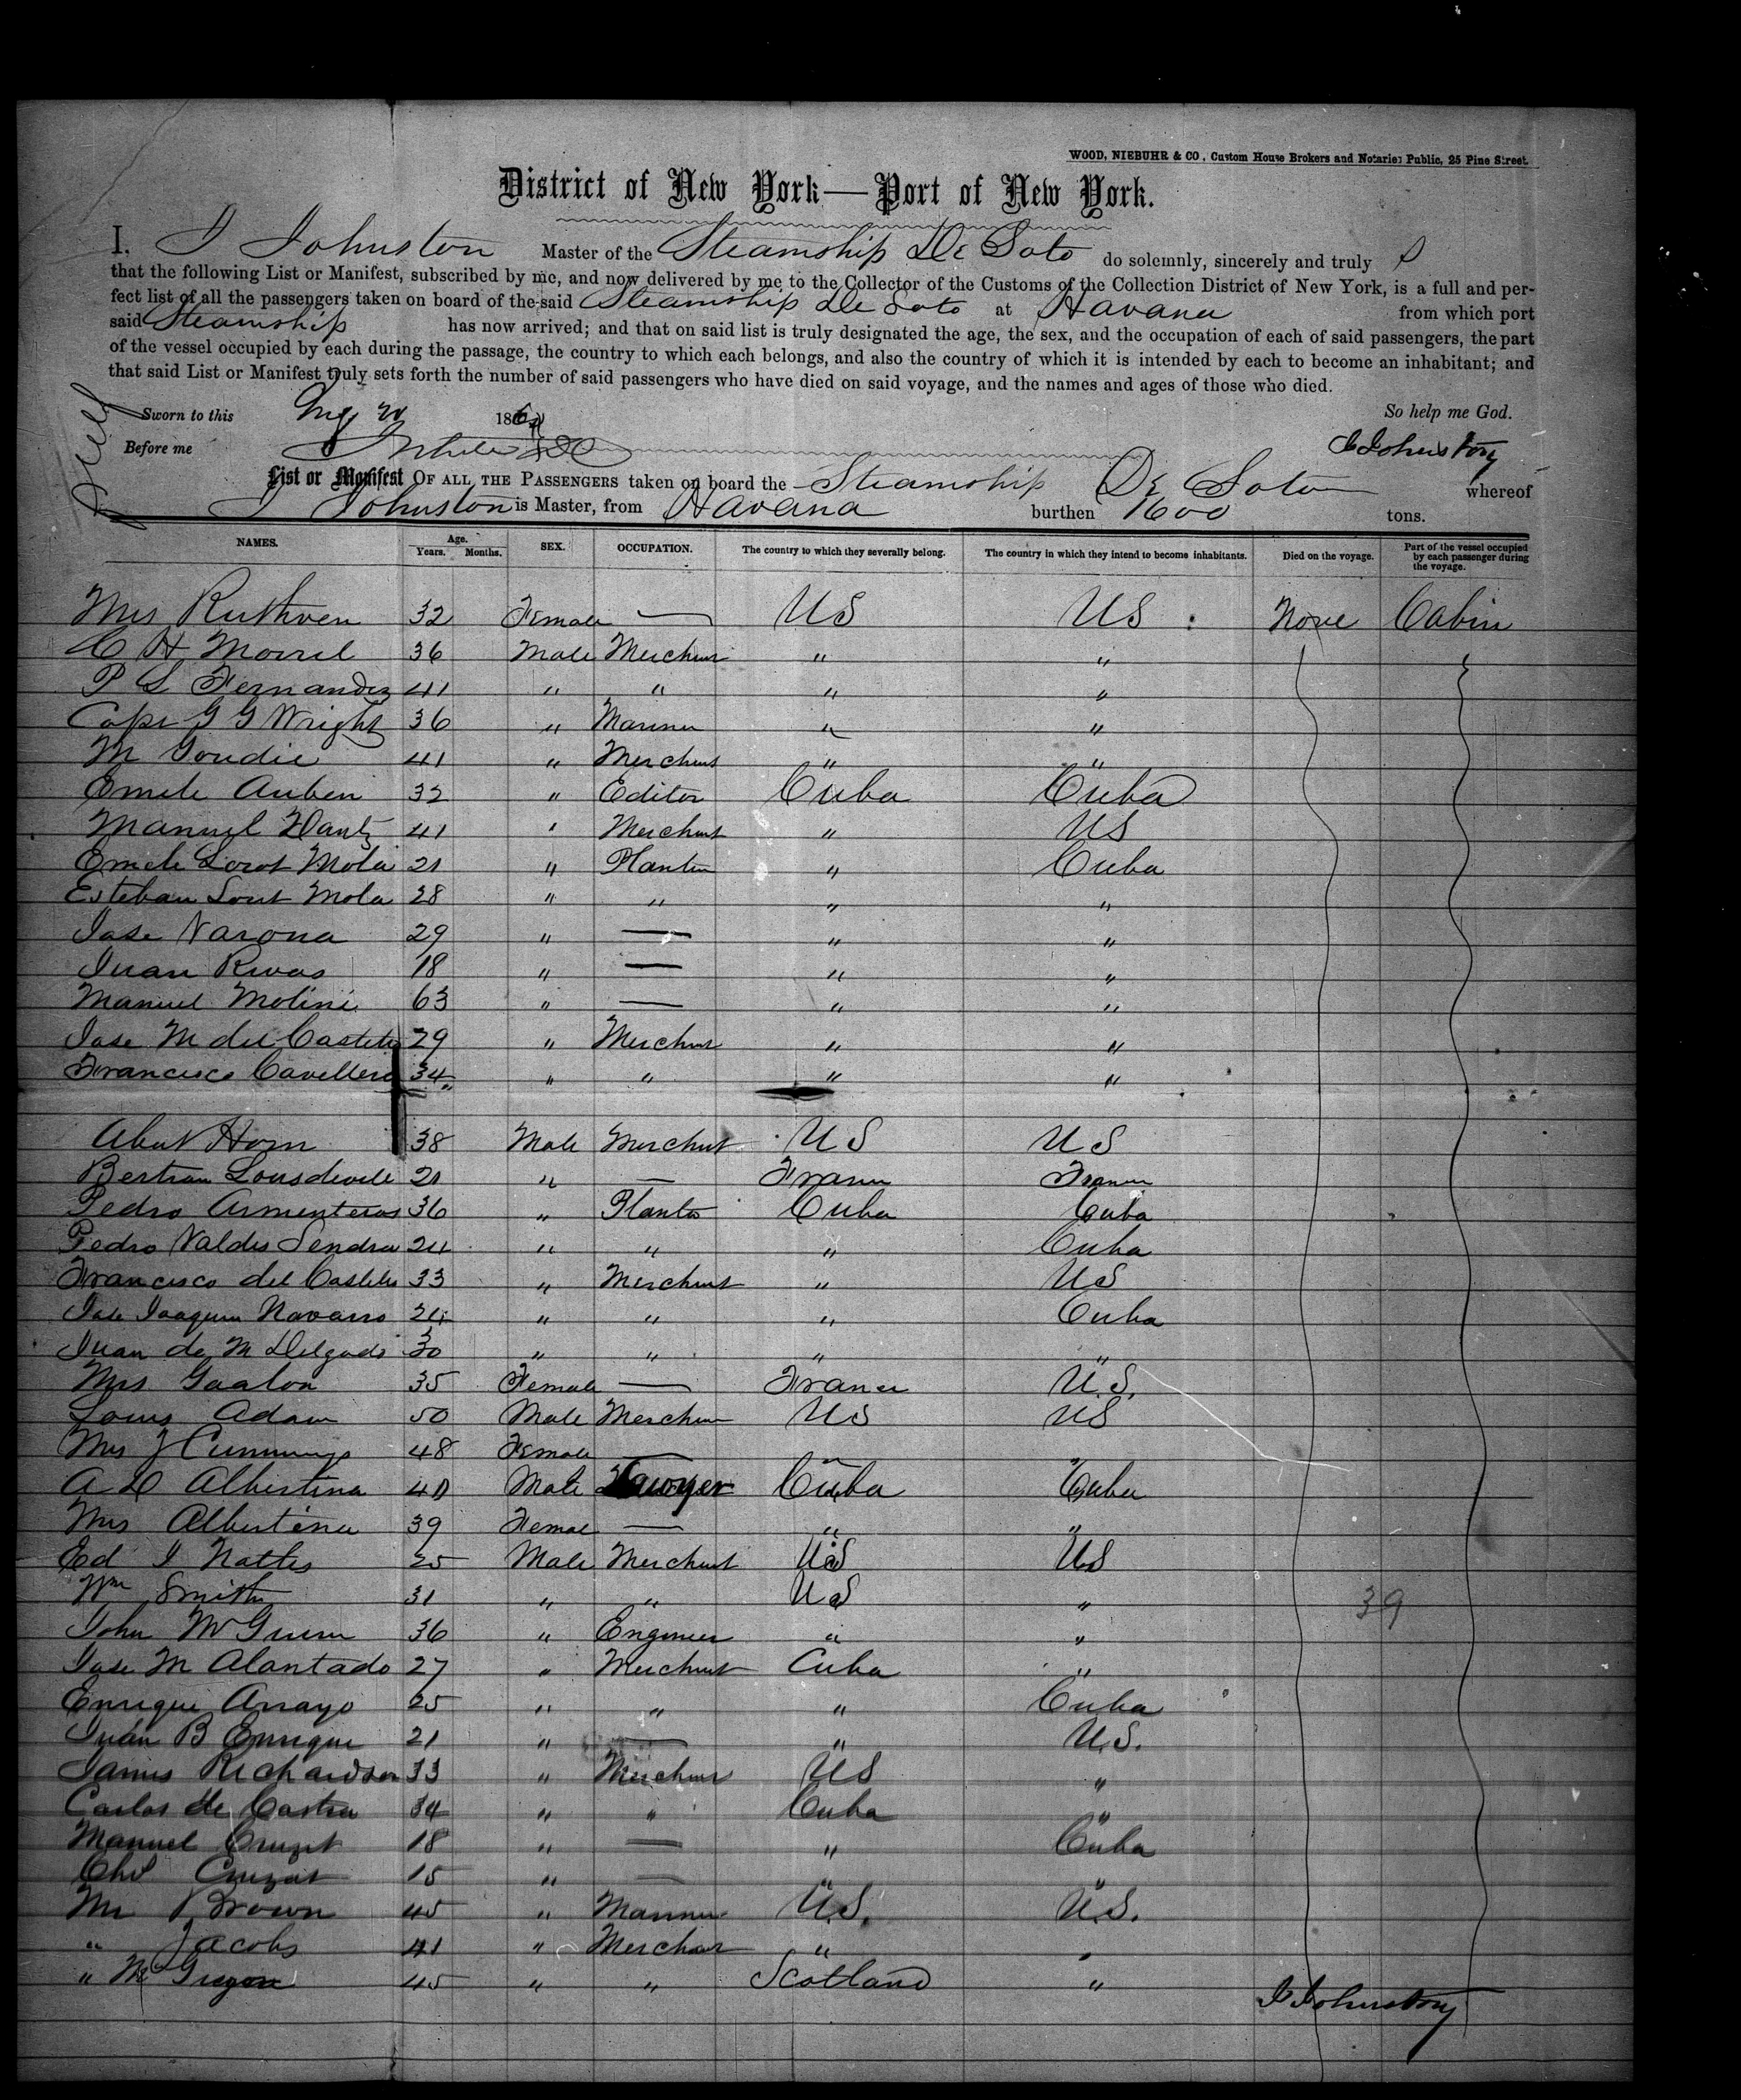 WOOD, NIEBUHR & CO., Custom House Brokers and Notaries Public, 25 Pine Street.
District of New York—Port of New York.
I, J Johnston Master of the Steamship De Soto do solemnly, sincerely and truly S
that the following List or Manifest, subscribed by me, and now delivered by me to the Collector of the Customs of the Collection District of New York, is a full and per-
fect list of all the passengers taken on board of the said Steamship De Soto at Havana from which port
said Steamship has now arrived; and that on said list is truly designated the age, the sex, and the occupation of each of said passengers, the part
of the vessel occupied by each during the passage, the country to which each belongs, and also the country of which it is intended by each to become an inhabitant; and
that said List or Manifest truly sets forth the number of said passengers who have died on said voyage, and the names and ages of those who died.
Sworn to this 186 So help me God.
Before me J Johnston
List or Manifest OF ALL THE PASSENGERS taken on board the Steamship De Soto whereof
J Johnston is Master, from Havana burthen 1600 tons.
NAMES. Age. Years. Months. SEX. OCCUPATION. The country to which they severally belong. The country in which they intend to become inhabitants. Died on the voyage. Part of the vessel occupied by each passenger during the voyage.
Mrs Ruthven 32 Female — US US None Cabin
C H Morrel 36 Male Merchant " "
P S Fernandez 41 " " " "
Capt G G Wright 36 " Mariner " "
M Goudie 41 " Merchant " "
Emile Auben 32 " Editor Cuba Cuba
Manuel 41 " Merchant " US
Emele Loret Mola 21 " Planter " Cuba
Esteban Loret Mola 28 " " " "
Jose Varona 29 " — " "
Juan Rivas 18 " — " "
Manuel Molini 63 " — " "
Jose M del Castillo 29 " Merchant " "
Francisco Cavellero 34 " " " "
Horn 38 Male Merchant US US
Bertran 21 " — France France
Pedro Armenteros 36 " Planter Cuba Cuba
Pedro Valdes Sendra 24 " " " Cuba
Francisco del Castillo 33 " Merchant " US
Jose Joaquin Navarro 24 " " " Cuba
Juan de M Delgado 30 " " " "
Mrs Gaalon 35 Female — France U.S.
Louis Adam 50 Male Merchant US US
Mrs J Cummings 48 Female — " "
A D Albertina 40 Male Lawyer Cuba Cuba
Mrs Albertina 39 Female — " "
Ed J Nattes 25 Male Merchant US US
Wm Smith 31 " " US " 39
John 36 " Engineer " "
Jose M Alantado 27 " Merchant Cuba "
Enrique Arrayo 25 " " " Cuba
Juan B Enrique 21 " — " U.S.
James Richardson 33 " Merchant US "
Carlos de Castra 34 " " Cuba "
Manuel Cruzat 18 " — " Cuba
Chs Cruzat 15 " — " "
Mr Brown 45 " Mariner U.S. U.S.
" Jacobs 41 " Merchant " "
" McGregor 45 " " Scotland "
J Johnston